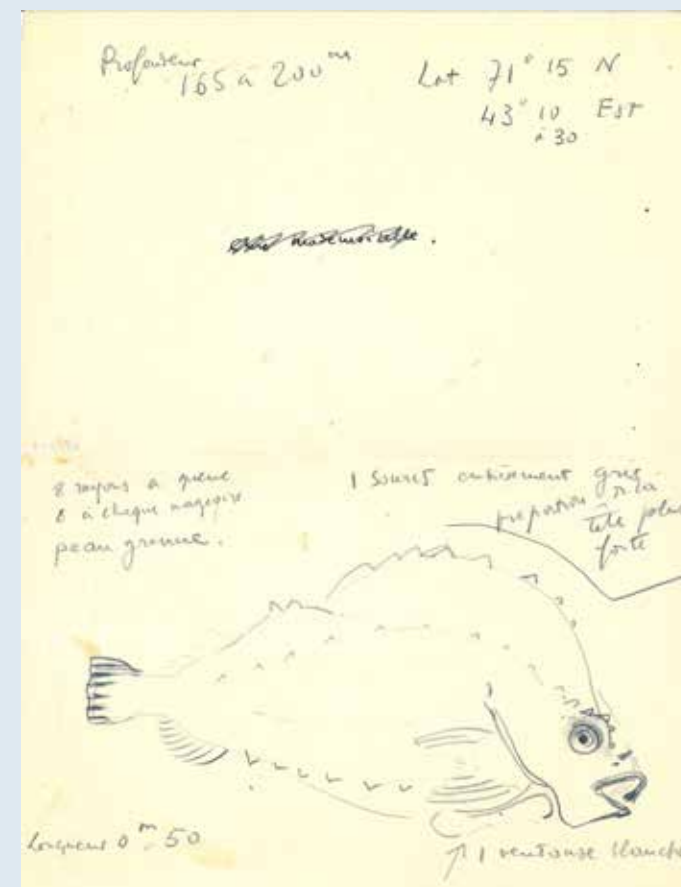 Profondeur
165 a 200 ms
Lat 71° 15 N
43° 10 Est
à 30
8 rayons a queue
6 a chaque nageoire
peau grenue.
1 entièrement gris
proportion
tête plus
forte
Longueur 0 m 50
↑ 1 ventouse blanche